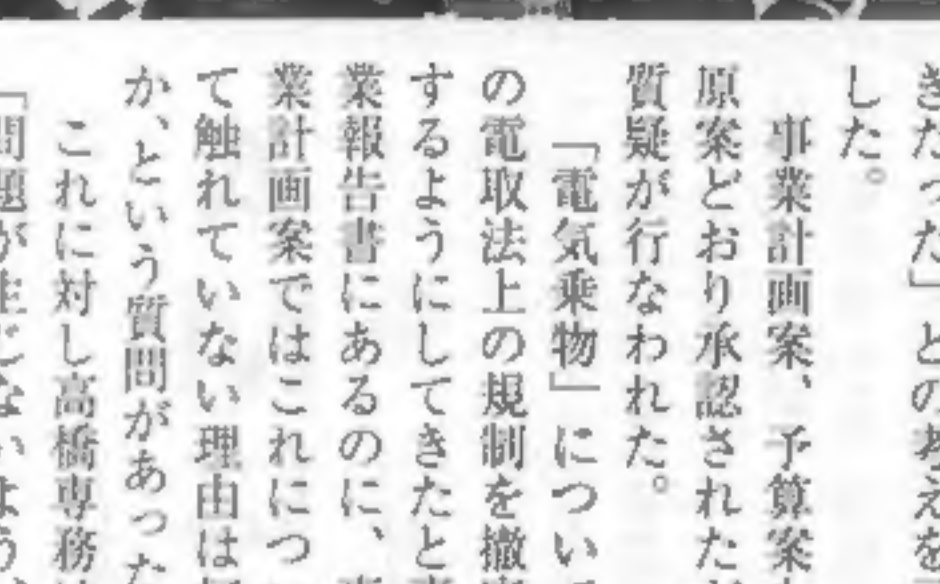 きだった」との考えを
した。
事業計画案、予算案
原案どおり承認された
質疑が行なわれた。
「電気乗物」につい
の電取法上の規制を撤
するようにしてきたと
業報告書にあるのに、
業計画案ではこれにつ
て触れていない理由は
か、という質問があった
これに対し高橋専務
「問題が生じないよう、